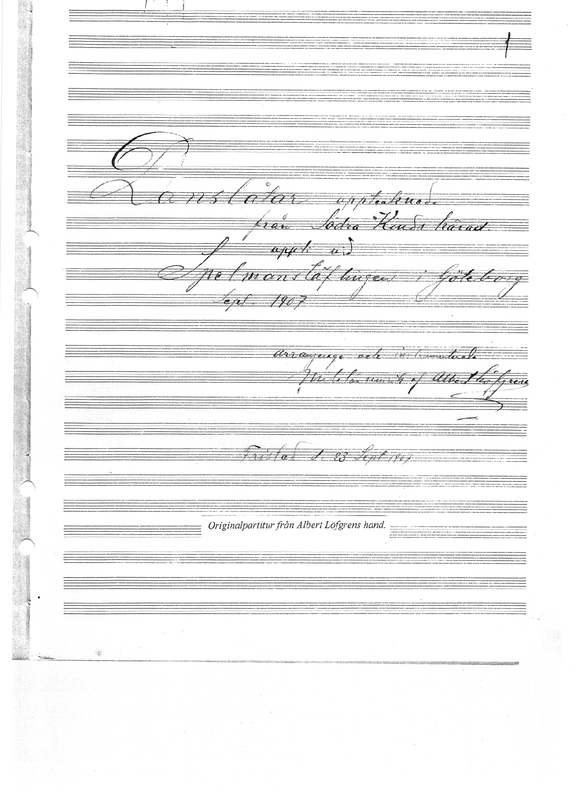 1
Danslåtar upptecknade
från Södra Kinds härad
vid
Speltmanstäflingen i Göteborg
Sept. 1907
arrangerade och
af Albert Löfgren
Fristad d. 23 Sept 1907
Originalpartitur från Albert Löfgrens hand.